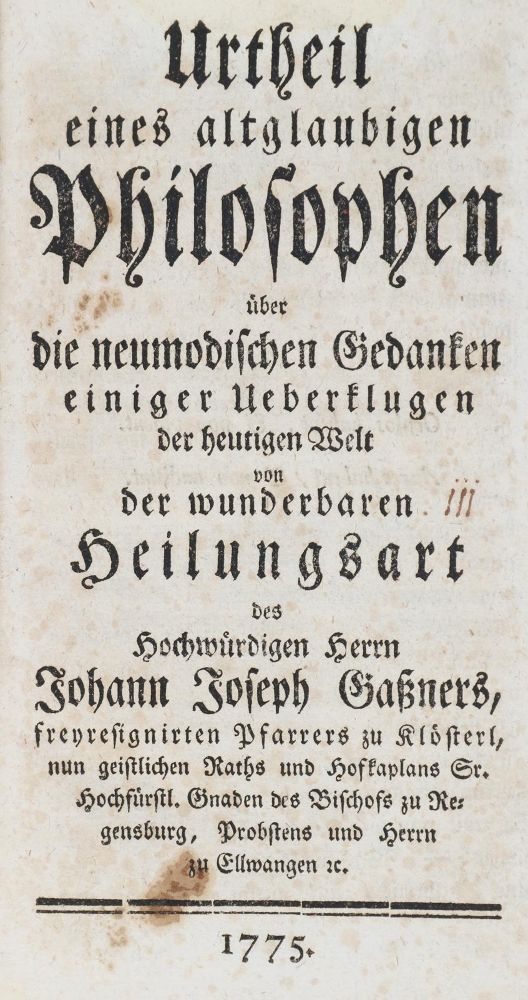 Urtheil
eines altglaubigen
Philosophen
über
die neumodischen Gedanken
einiger Ueberklugen
der heutigen Welt
von
der wunderbaren iii
Heilungsart
des
Hochwürdigen Herrn
Johann Joseph Gaßners,
freyresignirten Pfarrers zu Klösterl,
nun geistlichen Raths und Hofkaplans Sr.
Hochfürstl. Gnaden des Bischofs zu Re-
gensburg, Probstens und Herrn
zu Ellwangen ꝛc.
1775.